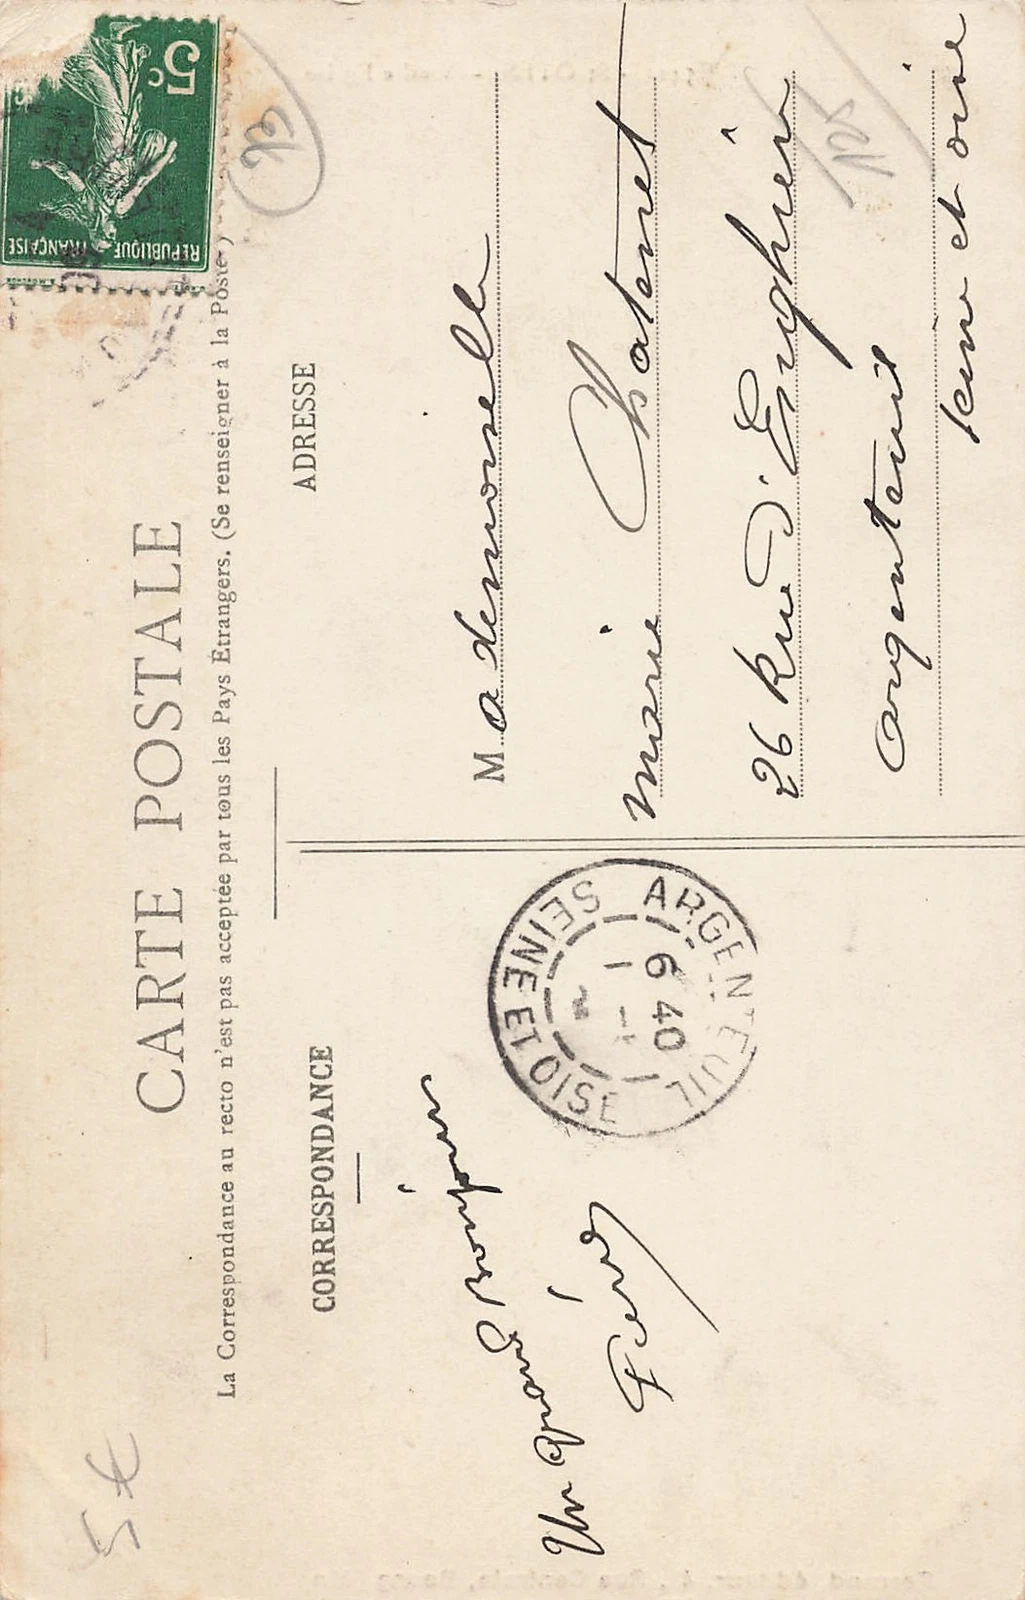 CARTE POSTALE
La Correspondance au recto n'est pas acceptée par tous les Pays Étrangers. (Se renseigner à la Poste)
5c
REPUBLIQUE FRANÇAISE
CORRESPONDANCE
Un Grand Bonjour
ARGENTEUIL
6 40
SEINE ET OISE
ADRESSE
Mademoiselle
Marie Chatenet
26 Rue d'Enghein
Argenteuil
Seine et oise
5€
125